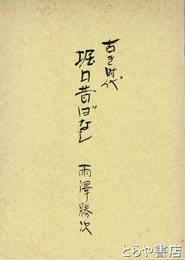 古き時代
堀口昔ばなし
雨澤勝次
とらや書店